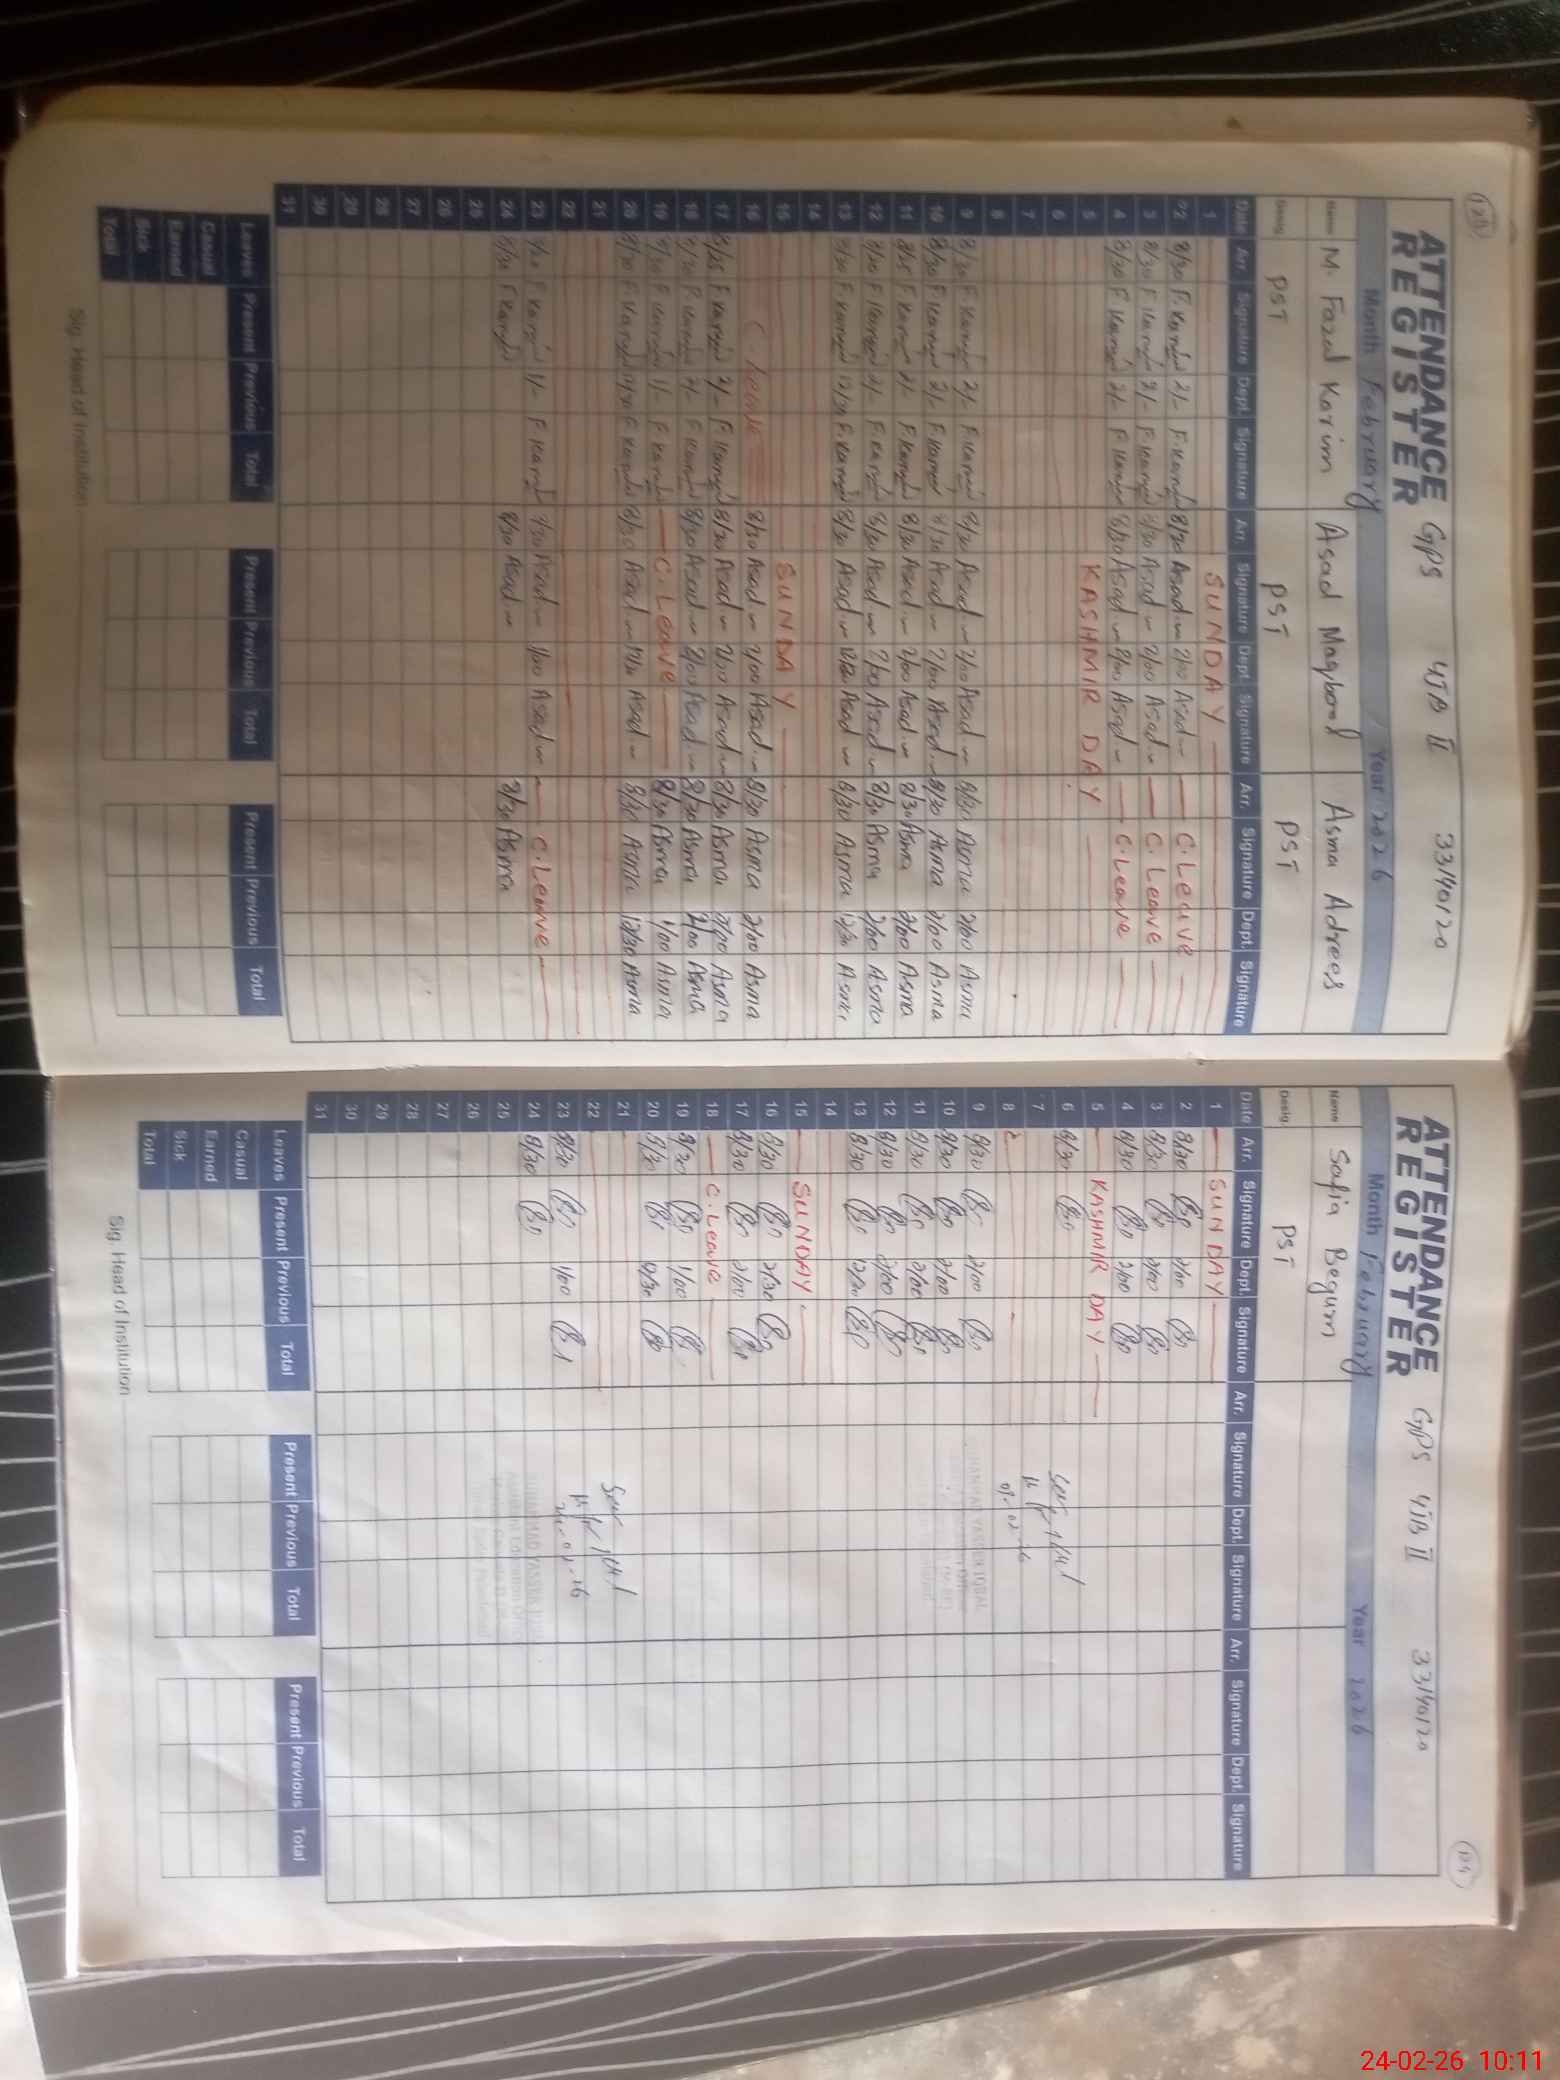 128
ATTENDANCE REGISTER
GPS 4JB II 33140120
Month February Year 2026
Name M. Fazal Karim Asad Maqbool Asma Adrees
Desig PST PST PST
Date Arr. Signature Dept. Signature Arr. Signature Dept. Signature Arr. Signature Dept. Signature
1 SUNDAY
2 8/30 F.Karim 2/- F.Karim 8/30 Asad 2/00 Asad C.Leave
3 8/30 F.Karim 2/- F.Karim 8/30 Asad 2/00 Asad C.Leave
4 8/30 F.Karim 2/- F.Karim 8/30 Asad 2/00 Asad C.Leave
5 KASHMIR DAY
6
7
8
9 8/30 F.Karim 2/- F.Karim 8/30 Asad 2/00 Asad 8/30 Asma 2/00 Asma
10 8/30 F.Karim 2/- F.Karim 8/30 Asad 2/00 Asad 8/30 Asma 2/00 Asma
11 8/25 F.Karim 2/- F.Karim 8/30 Asad 2/00 Asad 8/30 Asma 2/00 Asma
12 8/30 F.Karim 2/- F.Karim 8/30 Asad 2/00 Asad 8/30 Asma 2/00 Asma
13 8/30 F.Karim 12/30 F.Karim 8/30 Asad 12/30 Asad 8/30 Asma 12/30 Asma
14
15 SUNDAY
16 C.Leave 8/30 Asad 2/00 Asad 8/30 Asma 2/00 Asma
17 8/25 F.Karim 2/- F.Karim 8/30 Asad 2/00 Asad 8/30 Asma 2/00 Asma
18 8/30 F.Karim 2/- F.Karim 8/30 Asad 2/00 Asad 8/30 Asma 2/00 Asma
19 8/30 F.Karim 1/- F.Karim C.Leave 8/30 Asma 1/00 Asma
20 8/30 F.Karim 12/30 F.Karim 8/30 Asad 12/30 Asad 8/30 Asma 12/30 Asma
21
22
23 F.Karim 1/- F.Karim 8/30 Asad 1/00 Asad C.Leave
24 8/30 F.Karim 8/30 Asad 8/30 Asma
25
26
27
28
29
30
31
Leaves Present Previous Total Present Previous Total Present Previous Total
Casual
Earned
Sick
Total
Sig. Head of Institution
129
ATTENDANCE REGISTER
GPS 4JB II 33140120
Month February Year 2026
Name Safia Begum
Desig PST
Date Arr. Signature Dept. Signature Arr. Signature Dept. Signature Arr. Signature Dept. Signature
1 SUNDAY
2 8/30 2/00
3 8/30 2/00
4 8/30 2/00
5 KASHMIR DAY
6 8/30
7
8
9 8/30 2/00
10 8/30 2/00
11 8/30 2/00
12 8/30 2/00
13 8/30 12/30
14
15 SUNDAY
16 8/30 2/30
17 8/30 2/00
18 C.Leave
19 8/30 1/00
20 8/30 12/30
21
22
23 8/30 1/00
24 8/30
25
26
27
28
29
30
31
Seen
09-02-26
Seen
24-02-26
Leaves Present Previous Total Present Previous Total Present Previous Total
Casual
Earned
Sick
Total
Sig. Head of Institution
24-02-26 10:11